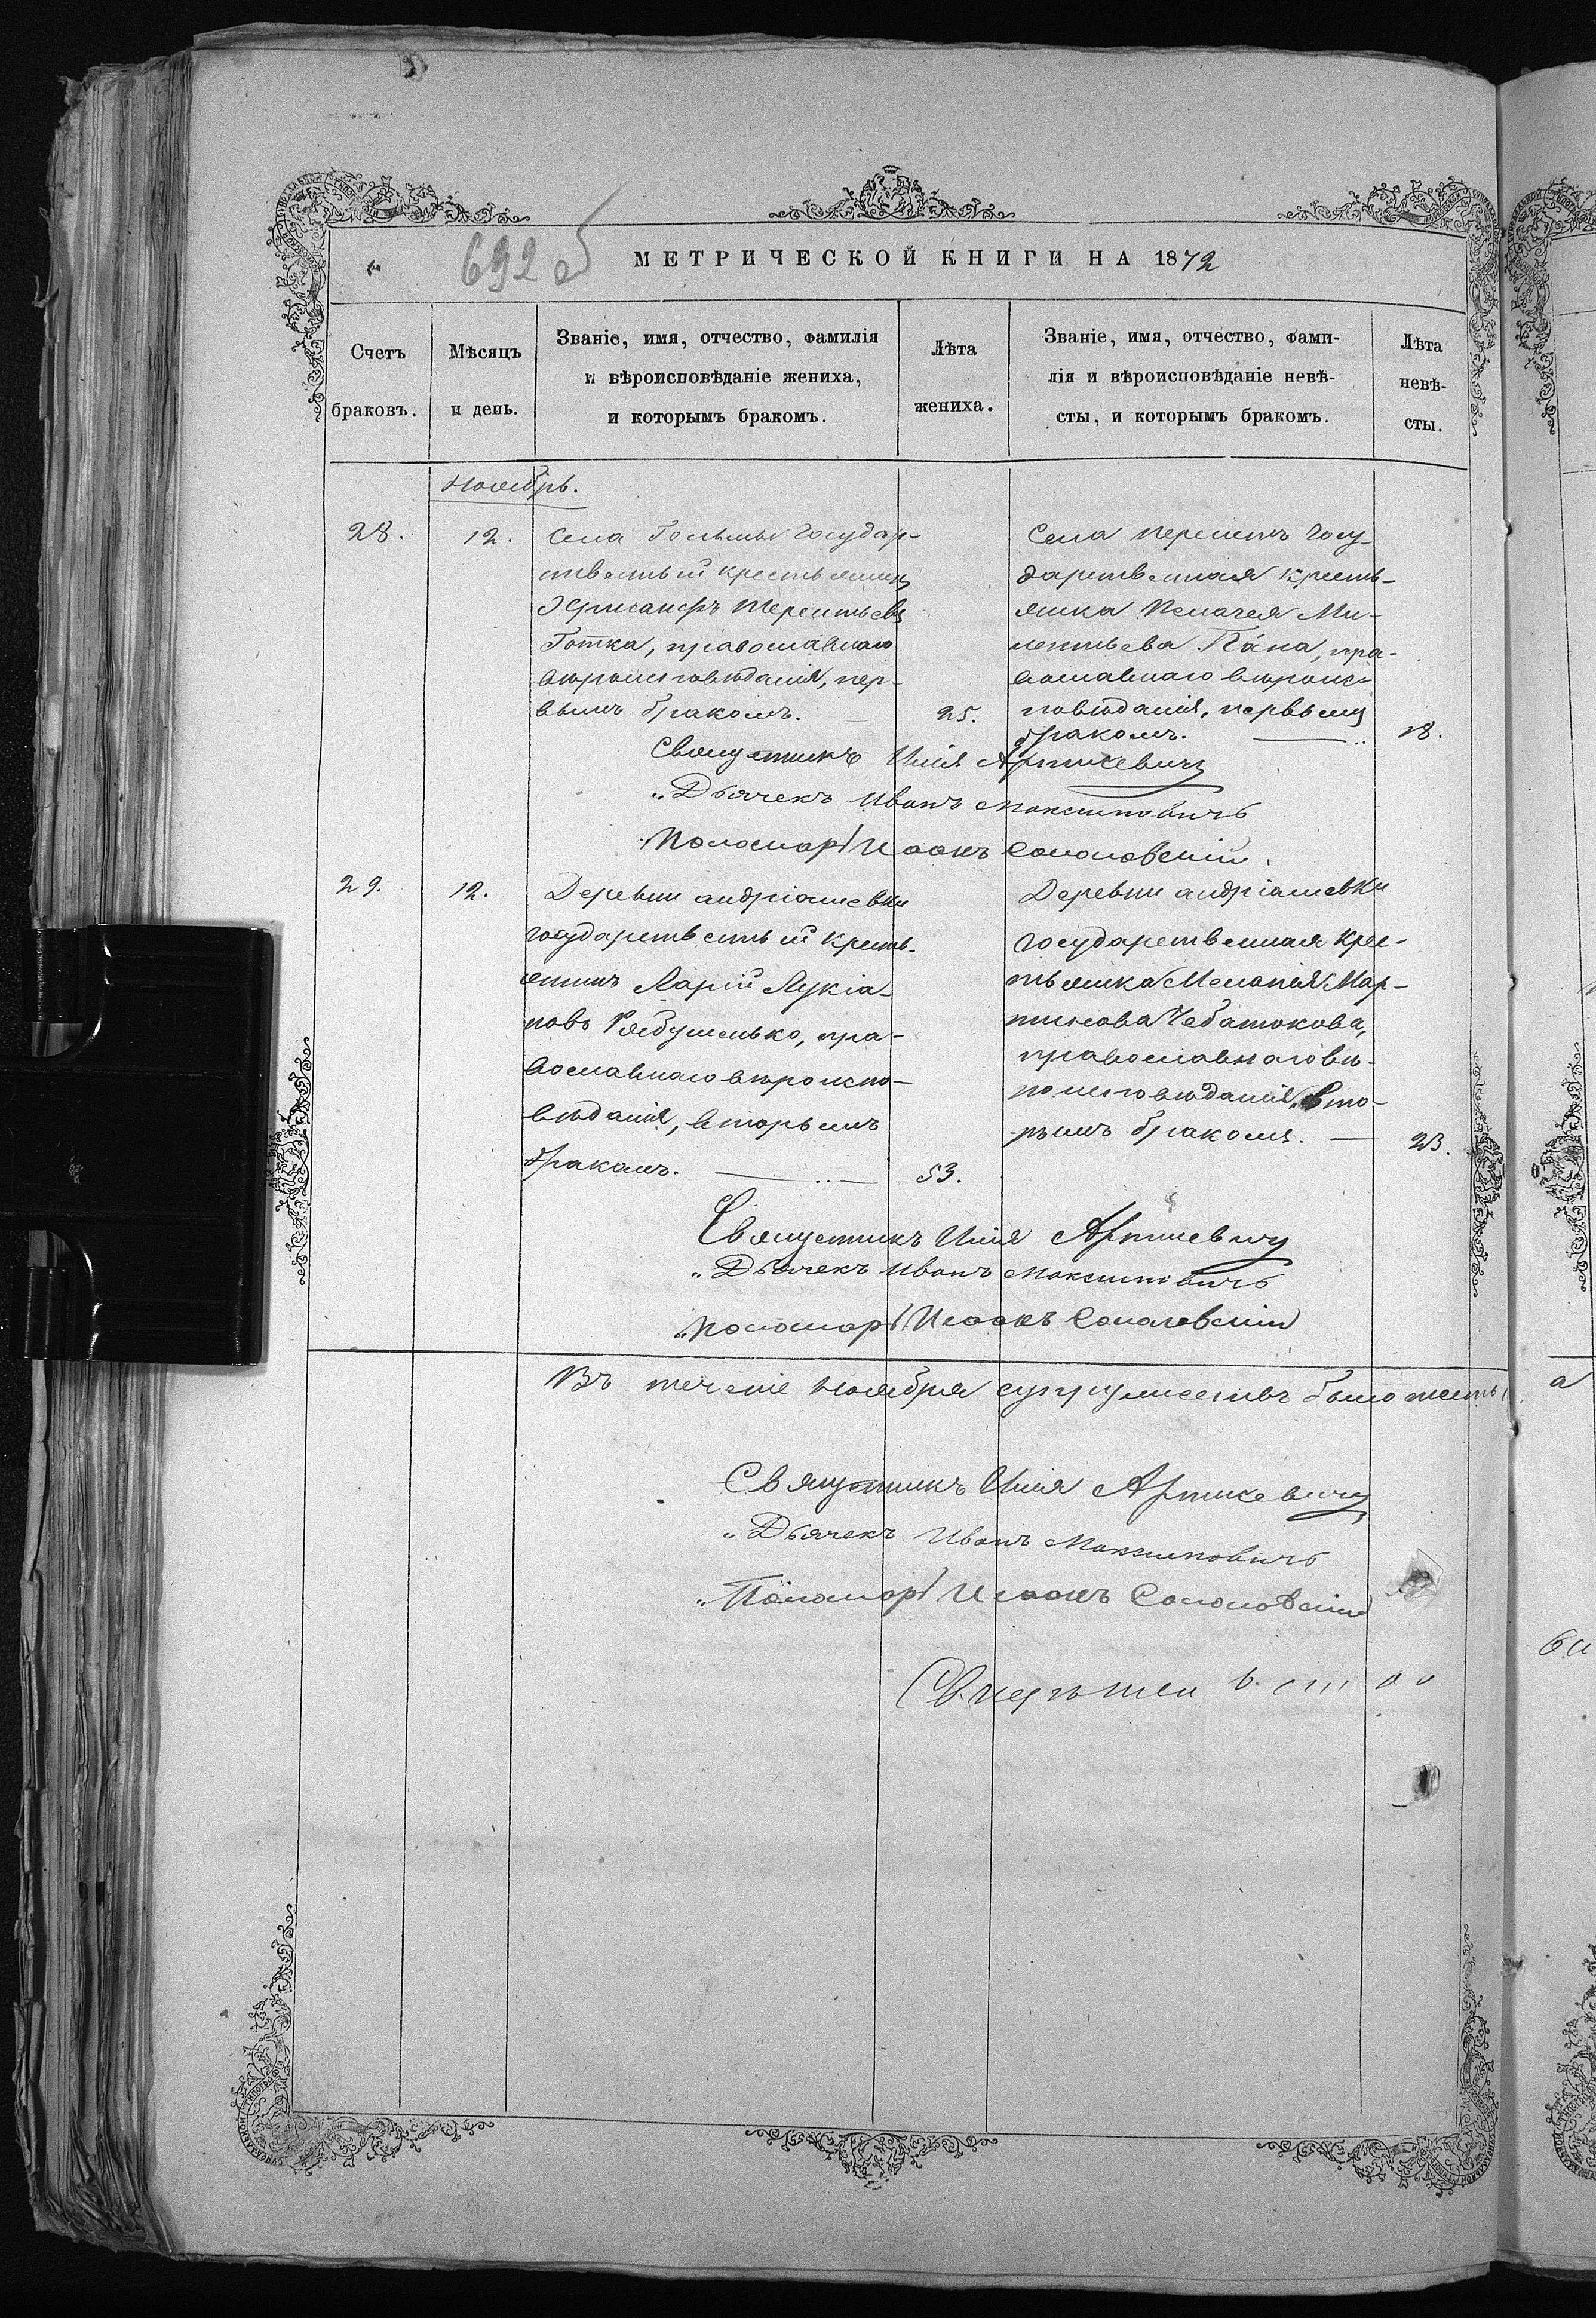 692 об
МЕТРИЧЕСКОЙ КНИГИ НА 1872
Счетъ браковъ.
Мѣсяцъ и день.
Званіе, имя, отчество, фамилія
и вѣроисповѣданіе жениха,
и которымъ бракомъ.
Лѣта жениха.
Званіе, имя, отчество, фами-
лія и вѣроисповѣданіе невѣ-
сты, и которымъ бракомъ.
Лѣта невѣ-
сты.
Ноябрь.
28.
12.
Села Гольмы Государ-
ственный крестьянинъ
Хрисанфъ Терентьевъ
Готка, православнаго
вѣроисповѣданія, пер-
вымъ бракомъ.
25.
Села Перелетъ Госу-
дарственная кресть-
янка Пелагея Ми-
лентьева Пана, пра-
вославнаго вѣроис-
повѣданія, первымъ
бракомъ.
18.
Священникъ Илія Артисевичъ
„Дьячекъ Иванъ Максимовичъ
Пономарь Исаакъ Сополовскій
29.
12.
Деревни Андріяшевки
государственный кресть-
янинъ Ларій Лукіа-
новъ Рябушенько, пра-
вославнаго вѣроиспо-
вѣданія, вторымъ
бракомъ.
53.
Деревни Андріяшевки
государственная крес-
тьянка Меланія Мар-
тинова Чебатокова,
православнаго вѣ-
роисповѣданія, вто-
рымъ бракомъ.
23.
Священникъ Илія Артисевичъ
„Дьячекъ Иванъ Максимовичъ
„Пономарь Исаакъ Сополовскій
Въ теченіе Ноября супружествъ было шесть
Священникъ Илія Артисевичъ
„Дьячекъ Иванъ Максимовичъ
„Пономарь Исаакъ Сополовскій